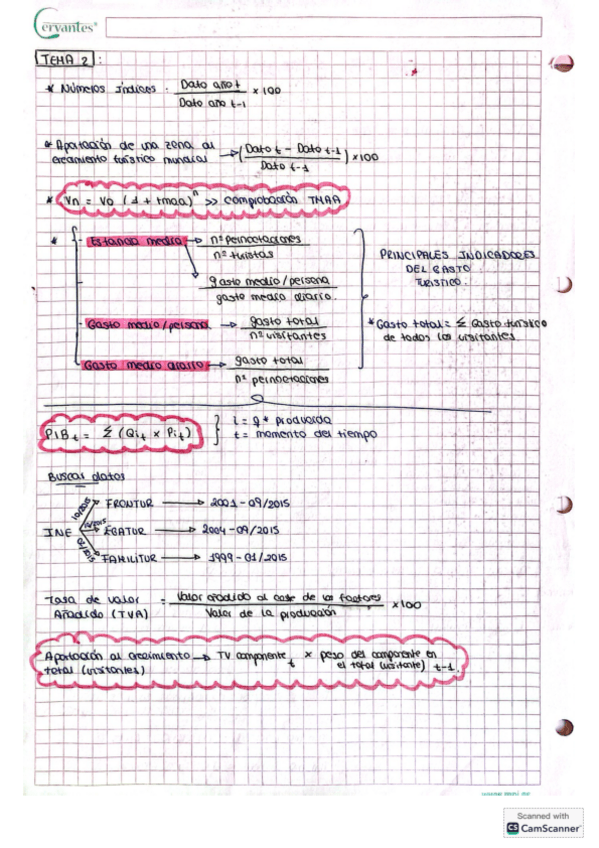 Cervantes
TEMA 2:
* Números índices: Dato año t / Dato año t-1 × 100
* Aportación de una zona al crecimiento turístico mundial → (Dato t - Dato t-1 / Dato t-1) × 100
* Vn = Vo (1 + tmaa)^n >> comprobación TMAA
* Estancia media → nº pernoctaciones / nº turistas
gasto medio/persona / gasto medio diario.
- Gasto medio/persona → gasto total / nº visitantes
Gasto medio diario → gasto total / nº pernoctaciones
PRINCIPALES INDICADORES
DEL GASTO
TURISTICO.
* Gasto total = Σ Gasto turístico
de todos los visitantes.
PIBt = Σ (Qit × Pit)
i = q* producida
t = momento del tiempo
Buscar datos
INE
10/2015 FRONTUR → 2001 - 09/2015
EGATUR → 2004 - 09/2015
02/2015 FAMILITUR → 1999 - 01/2015
Tasa de valor Añadido (TVA) = Valor añadido al coste de los factores / Valor de la producción × 100
Aportación al crecimiento → TV componente t × peso del componente en
total (visitantes) el total (visitante) t-1.
Scanned with
CS CamScanner